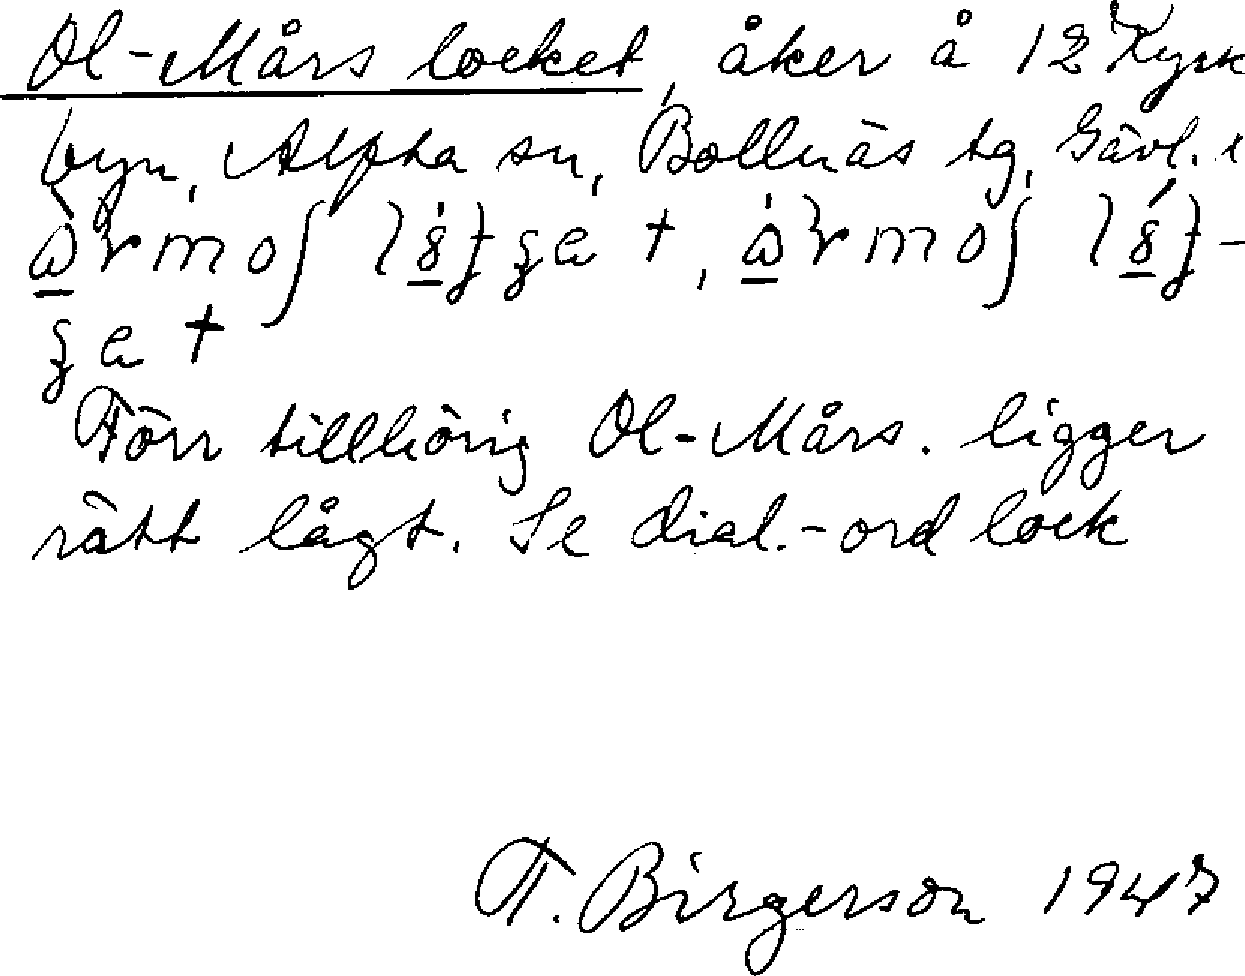 Ol-Mårs locket, åker å 12 Kyrk
byn, Alfta sn, Bollnäs tg, Gävl. l
Förr tillhörig Ol-Mårs. ligger
rätt lågt. Se dial.-ord lock
T. Birgerson 1947